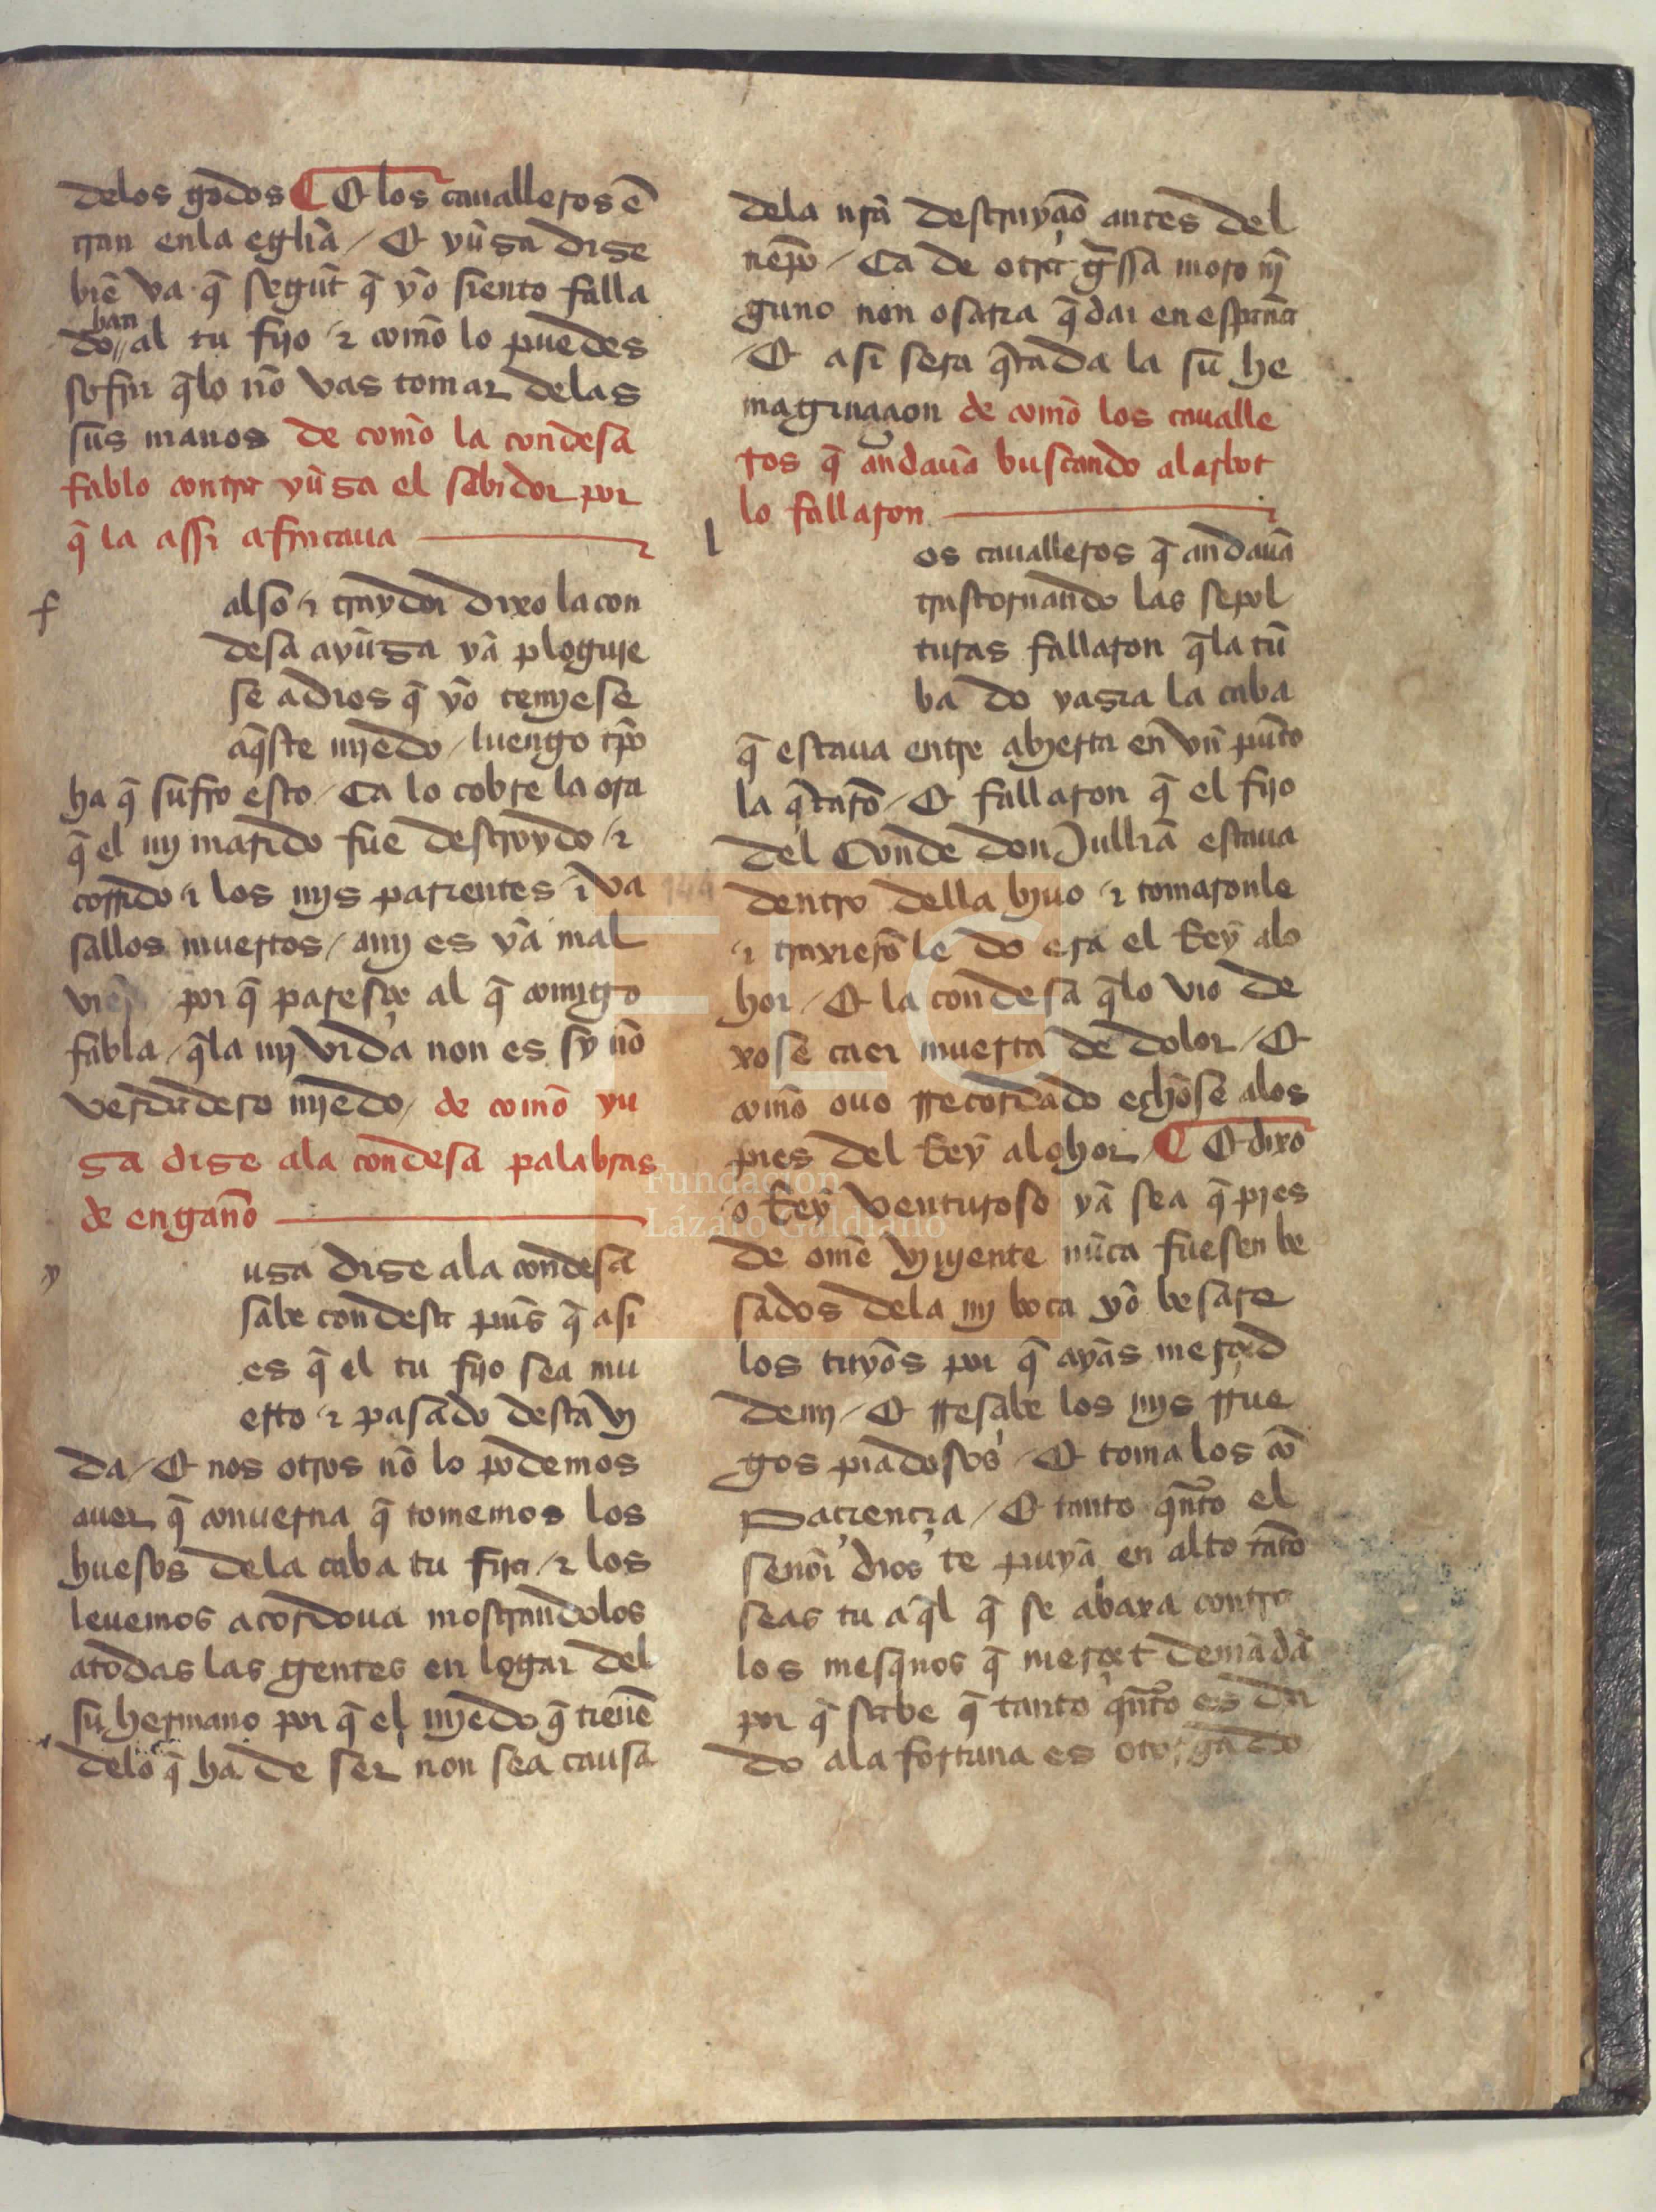 delos godos ¶ Et los caualleros ẽ
tran enla egľia / Et yũsa dise
biẽ va q̃ segũt q̃ yõ siento falla
do//ban al tu fijo ⁊ com̃o lo puedes
sofrir q̃lo nõ vas tomar delas
sus manos de com̃o la condesa
fablo contra yũsa el sabidor por
q̃ la assi afincaua
f
also ⁊ traydor dixo la con
desa ayũsa yã ploguie
se adios q̃ yõ temjese
aq̃ste mjedo / luengo tp̃o
ha q̃ sufro esto / Ca lo cobre la ora
q̃ el mj marido fue destroydo ⁊
corrido ⁊ los mjs parientes ⁊ va
sallos muertos / amj es yã mal
por q̃ paresçe al q̃ comigo
fabla / q̃la mj vida non es sy nõ
verdadero mjedo / de com̃o yu
sa dise ala condesa palabras
de engan̄o
y
usa dise ala condesa
sabe condesa pues q̃ asi
es q̃ el tu fijo sea mu
erto ⁊ pasado desta vj
da / Et nos otros nõ lo podemos
auer q̃ conuerna q̃ tomemos los
huesos dela caba tu fija / ⁊ los
leuemos acordoua mostrandolos
atodas las gentes en logar del
su hermano por q̃ el mjedo q̃ tienẽ
delo q̃ ha de ser non sea causa
dela nr̃a destruyçiõ antes del
tiẽpo / Ca de otra gĩssa moro nj̃
guno non osaria q̃dar en espan̄a
/ Et asi sera q̃tada la su he
maginaçion de com̃o los caualle
ros q̃ andauã buscando alarbot
lo fallaron
l
os caualleros q̃ andauã
trastornando las sepol
turas fallaron q̃la tũ
ba do yasia la caba
q̃ estaua entre abierta en vñ pũto
la q̃tarõ / Et fallaron q̃ el fijo
del Conde don Julliã estaua
dentro della bjuo ⁊ tomaronle
⁊ traxierõ le do era el Rey alo
hor / Et la condesa q̃lo vio de
xose caer muerta de dolor / Et
com̃o ouo rrecordado echõse alos
pies del Rey alohor / ¶ Et dixo
o Rey venturoso yã sea q̃ pies
de om̃e viujente nũca fuesen be
sados dela mj boca yõ besare
los tuyos por q̃ ayas merçed
demj / Et rresçibe los mjs rrue
gos piadosos / Et toma los cõ
paciencia / Et tanto q̃nto el
sen̄or dios te puya en alto tãto
seas tu aq̃l q̃ se abaxa contra
los mesq̃nos q̃ merçet demãdã
por q̃ sabe q̃ tanto q̃nto es da
do ala fortuna es otorgado
144
FLG
Fundación
Lázaro Galdiano